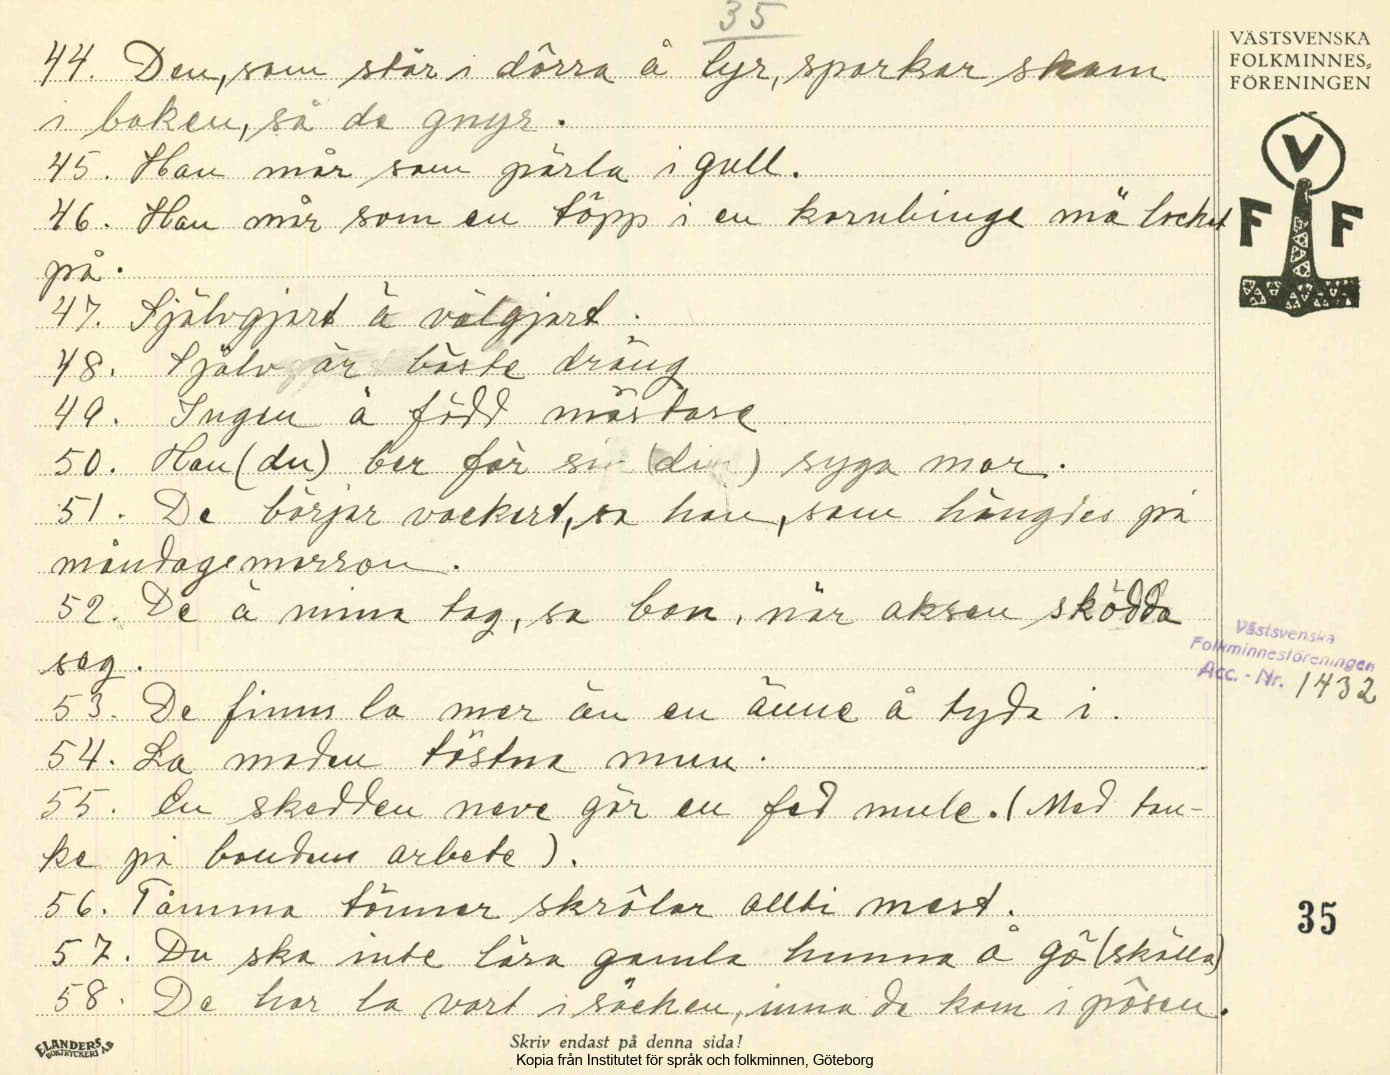 35
VÄSTSVENSKA
FOLKMINNES-
FÖRENINGEN
V
F F
44. Den, som står i dörra å lyr, sparkar skam
i baken, så de gnyr.
45. Han mår som pärla i gull.
46. Han mår som en töpp i en kornbinge mä locket
på.
47. Självgjort ä välgjort.
48. Själv är bäste dräng
49. Ingen ä född mästare
50. Han (du) ber för sin (din) syga mor.
51. De börjar vackert, sa han, som hängdes på
måndagsmorron.
52. De ä mina tag, sa bon, när aksen sködda
seg.
53. De finns la mer än en änne å tyda i.
54. La maden töstna mun.
55. En skedden neve gör en fed mule. (Med tan-
ke på bondens arbete).
56. Tämma tönner skrölar allti mest.
57. Du ska inte lära gamla hunna å gö (skälla)
58. De har la vart i säcken, inna de kom i påsen.
Västsvenska
Folkminnesföreningen
Acc. - Nr. 1432
35
ELANDERS
BOKTRYCKERI AB
Skriv endast på denna sida!
Kopia från Institutet för språk och folkminnen, Göteborg